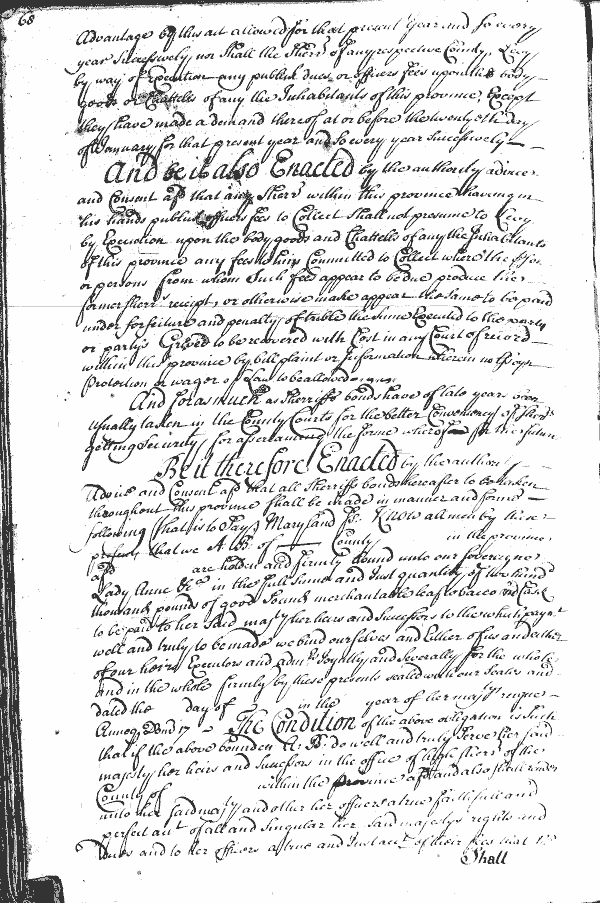 68
Advantage by this act allowed for that present year and so every
year Successively, nor Shall the Sherr: of any respective County, Levy
by way of Execution any publick dues or officers fees upon the body
goods or Chattells of any the Inhabitants of this province Except
they have made a demand thereof at or before the twentyeth day
of January for that present year and so every year Successively
And be it also Enacted by the authority advice
and Consent afd that any Sherr within this province having in
his hands publick officers fees to Collect Shall not presume to Levy
by Execution upon the body goods and Chattells of any the Inhabitants
of this province any fees to him Committed to Collect where the person
or persons from whom Such fees appear to be due produce the
former Sherrs receipt, or otherwise make appear the same to be paid
under forfeiture and penalty of treble the Sume Executed to the party
or partys Greved to be recovered with Cost in any Court of record
within this province by bill plaint or Information wherein no Essoyn
Protection or wager of Law to be allowed
And forasmuch as Sherriffs bonds have of late years been
usually taken in the County Courts for the better Conveniency of Sherrs
getting Security, for ascertaining the forme whereof for the future
Be it therefore Enacted by the authority
Advice and Consent afd that all Sherriffs bonds hereafter to be taken
throughout this province Shall be made in manner and forme
following (that is to Say) Maryland Ss. Know all men by these
presents that we A. B. of County in the province
afd are holden and firmly bound unto our Sovereigne
Lady Anne &ca in the full Sume and Just quantity of two hund
thousand pounds of good Sound merchantable leaf tobacco and Cask
to be paid to her said majty her heirs and Successors to the which paymt
well and truly to be made we bind ourselves and Either of us and either
of our heirs Executors and admrs Joyntly and Severally for the whole
and in the whole firmly by these presents sealed with our Seales and
dated the day of in the year of her majtys reigne
Annoqe Dmd 17 The Condition of the above obligation is Such
that if the above bounden A: B: do well and truly Serve her said
majesty her heirs and Successors in the office of high Sherr of the
County of within the province afd and also Shall render
unto her said majty and other her officers a true faithfull and
perfect acct of all and Singular her said majestys rights and
Dues and to her officers a true and Just acct of their fees that
Shall